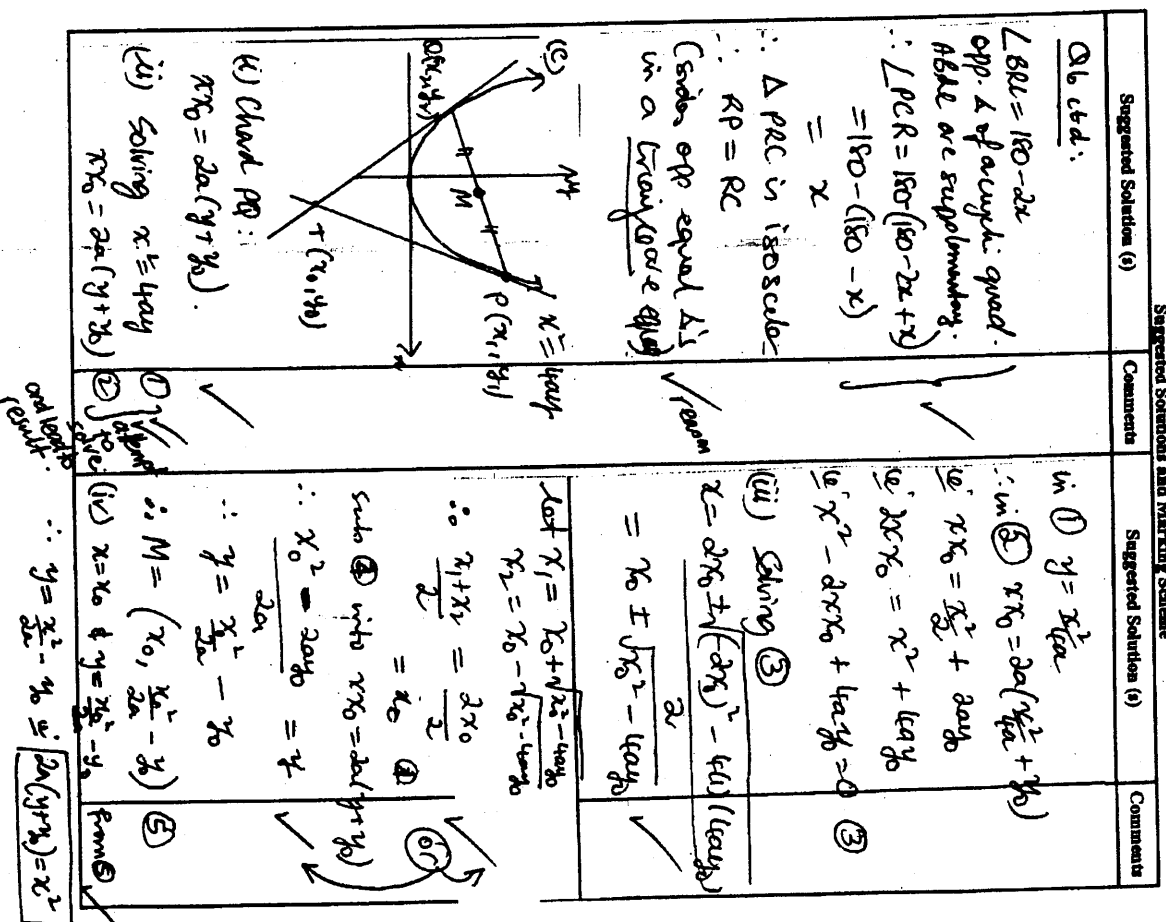 Suggested Solutions and Marking Scheme
Suggested Solution (s)
Comments
Suggested Solution (s)
Comments
Q6 ctd:
∠BRC = 180 - 2x
opp. ∠ of a cyclic quad.
are supplementary.
∴ ∠PCR = 180 - (180 - 2x + x)
= 180 - (180 - x)
= x
∴ Δ PRC is isosceles
∴ RP = RC
(sides opp equal ∠'s
in a triangle are equal)
✓ reason
(c)
x² = 4ay
Q(x₂, y₂)
M
P(x₁, y₁)
T(x₀, y₀)
(i) Chord PQ:
xx₀ = 2a(y + y₀).
(ii) Solving x² = 4ay ①
xx₀ = 2a(y + y₀) ②
attempt
to
solve
and leads to
result.
in ① y = x²/4a
∴ in ② xx₀ = 2a(x²/4a + y₀)
ie xx₀ = x²/2 + 2ay₀
ie 2xx₀ = x² + 4ay₀
ie x² - 2xx₀ + 4ay₀ = 0 ③
(iii) Solving ③
x = 2x₀ ± √(-2x₀)² - 4(1)(4ay₀) / 2
= x₀ ± √x₀² - 4ay₀
let x₁ = x₀ + √x₀² - 4ay₀
x₂ = x₀ - √x₀² - 4ay₀
∴ x₁ + x₂ / 2 = 2x₀ / 2
= x₀ ④
or
subs ④ into xx₀ = 2a(y + y₀)
∴ x₀² - 2ay₀ / 2a = y
∴ y = x₀²/2a - y₀
∴ M = (x₀, x₀²/2a - y₀) ⑤
(iv) x = x₀ & y = x₀²/2a - y₀ from ⑤
∴ y = x²/2a - y₀ ie 2a(y + y₀) = x²